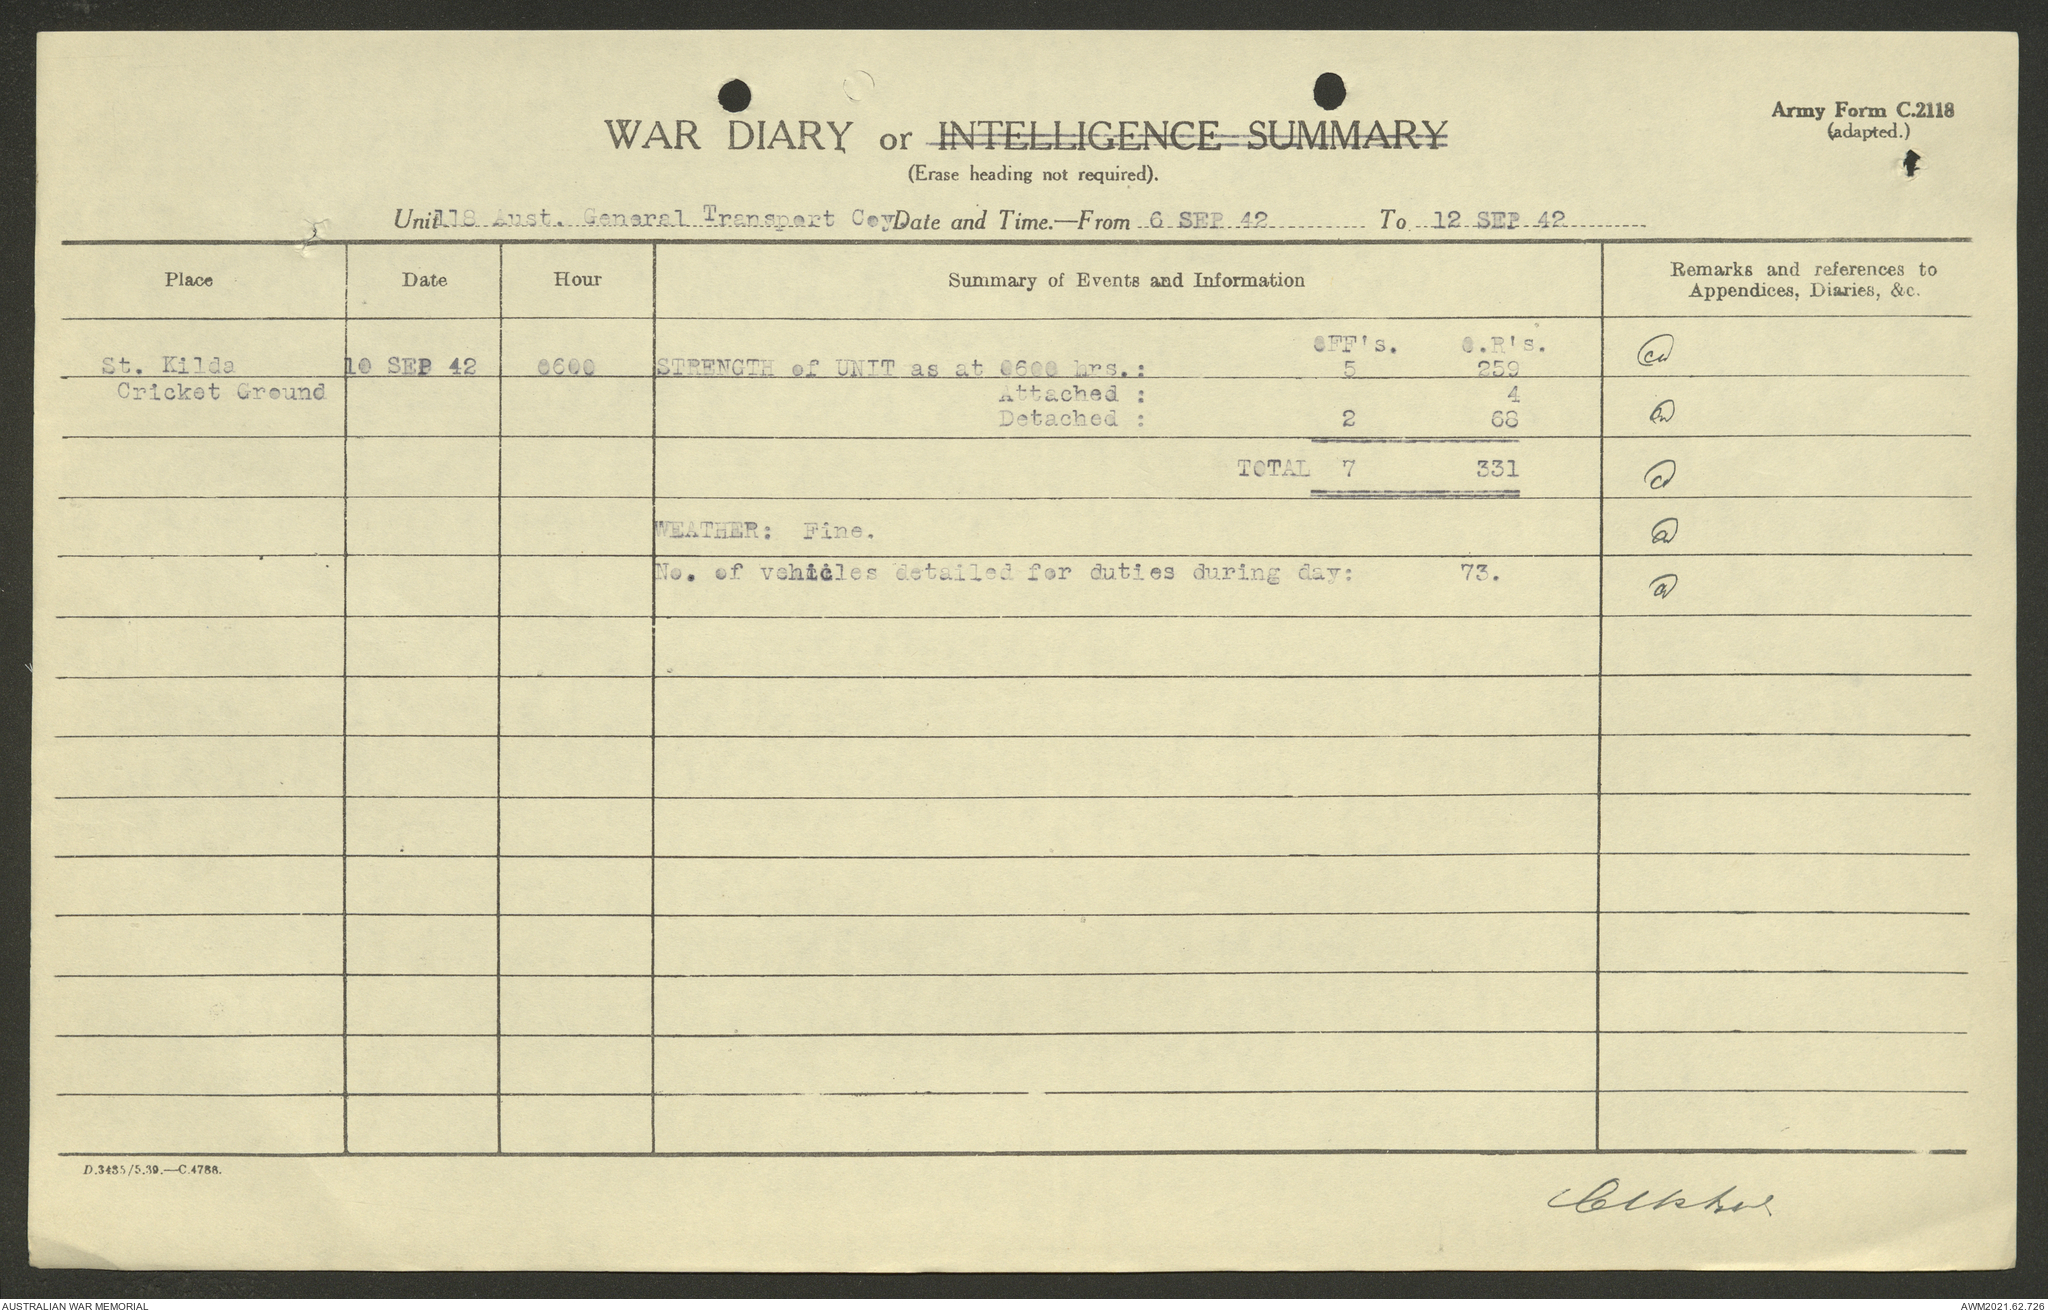 Army Form C.2118
(adapted.)
WAR DIARY or INTELLIGENCE SUMMARY
(Erase heading not required).
Unit 118 Aust. General Transport Coy. Date and Time.—From 6 SEP 42 To 12 SEP 42
Place Date Hour Summary of Events and Information Remarks and references to
Appendices, Diaries, &c.
OFF's. O.R's.
St. Kilda 10 SEP 42 0600 STRENGTH of UNIT as at 0600 hrs.: 5 259
Cricket Ground Attached : 4
Detached : 2 68
TOTAL 7 331
WEATHER: Fine.
No. of vehicles detailed for duties during day: 73.
D.3435/5.39.—C.4788.
AUSTRALIAN WAR MEMORIAL AWM2021.62.726